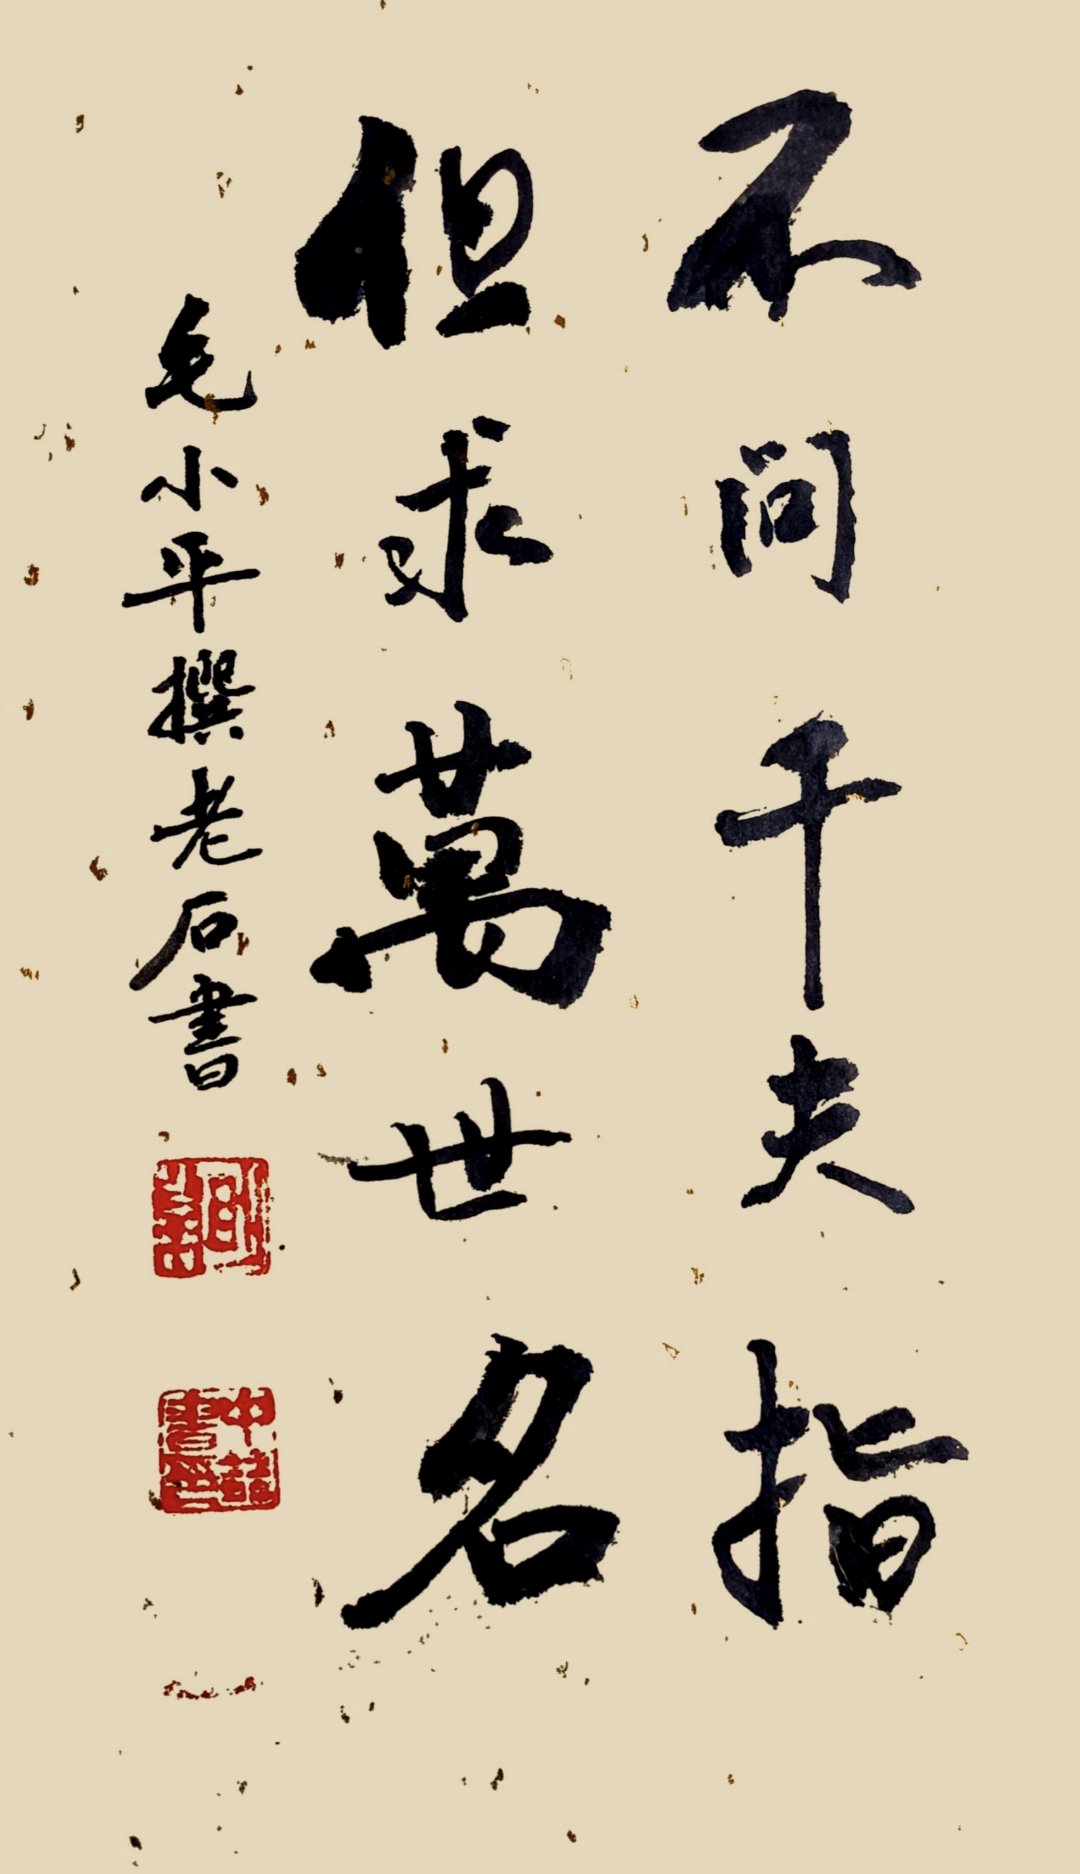 不问千夫指
但求萬世名
毛小平撰老石書